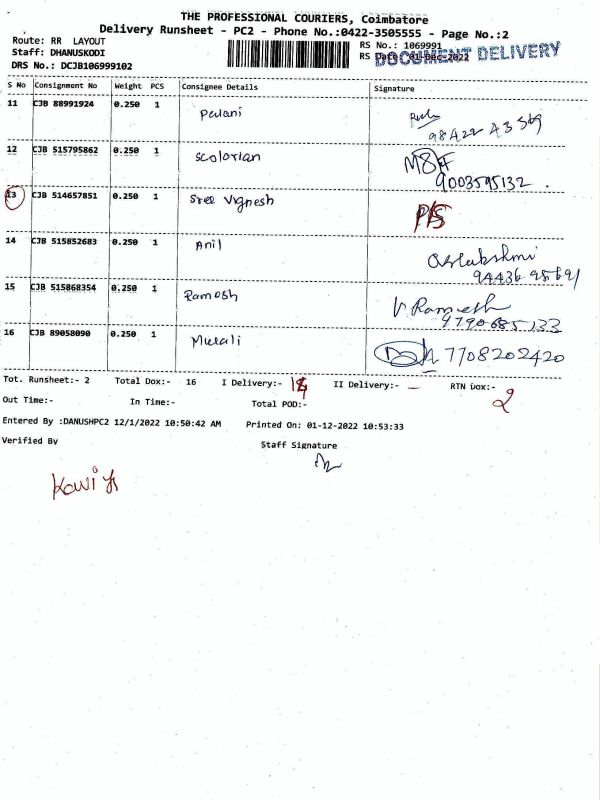 THE PROFESSIONAL COURIERS, Coimbatore
Delivery Runsheet - PC2 - Phone No.:0422-3505555 - Page No.:2
Route: RR LAYOUT
Staff: DHANUSKODI
DRS No.: DCJB106999102
RS No.: 1069991
RS Date: 01-Dec-2022
DOCUMENT DELIVERY
S No Consignment No Weight PCS Consignee Details Signature
11 CJB 88991924 0.250 1 Palani
98422 43569
12 CJB 515795862 0.250 1 Scolorian
9003595132.
13 CJB 514657851 0.250 1 Sree Vignesh P/S
14 CJB 515852683 0.250 1 Anil
94436 95691
15 CJB 515868354 0.250 1 Ramesh V Ramesh
9790685133
16 CJB 89058090 0.250 1 Murali 7708202420
Tot. Runsheet:- 2 Total Dox:- 16 I Delivery:- 14 II Delivery:- — RTN Dox:- 2
Out Time:- In Time:- Total POD:-
Entered By :DANUSHPC2 12/1/2022 10:50:42 AM Printed On: 01-12-2022 10:53:33
Verified By Staff Signature